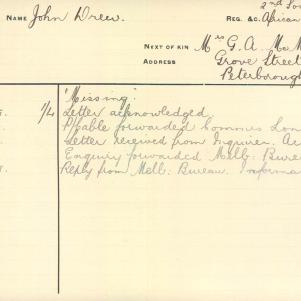 2nd Sou
NAME John Drew. REG. &C. African
NEXT OF KIN Mrs G. A. McM
ADDRESS Grove Street
Peterborough
"Missing".
1/4 Letter acknowledged
P/Cable forwarded Commrs Lon
Letter received from Inquirer. Ac
Enquiry forwarded Melb: Bure
Reply from Melb: Bureau. Informa